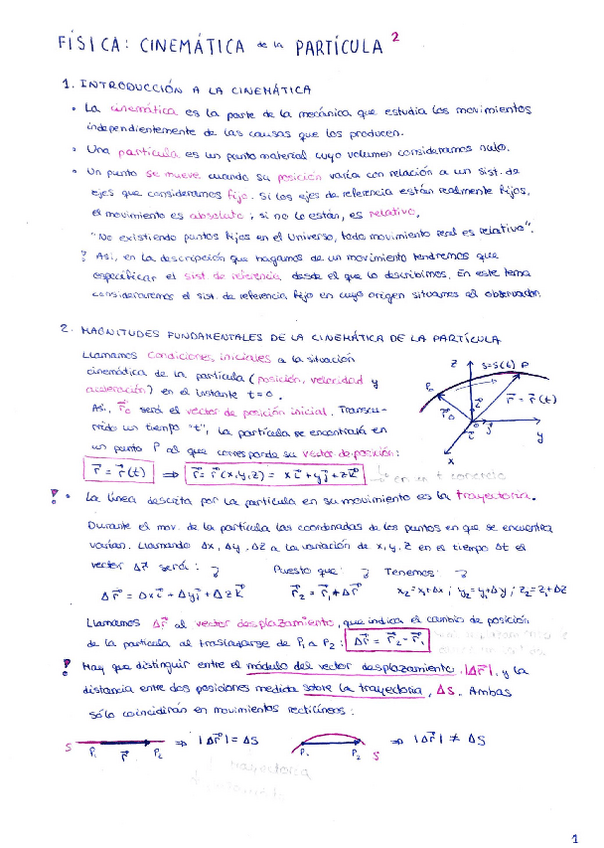 FÍSICA: CINEMÁTICA de la PARTÍCULA 2
1. INTRODUCCIÓN A LA CINEMÁTICA
• La cinemática es la parte de la mecánica que estudia los movimientos
independientemente de las causas que los producen.
• Una partícula es un punto material cuyo volumen consideramos nulo.
• Un punto se mueve cuando su posición varía con relación a un sist. de
ejes que consideramos fijo. Si los ejes de referencia están realmente fijos,
el movimiento es absoluto; si no lo están, es relativo.
"No existiendo puntos fijos en el Universo, todo movimiento real es relativo".
? Así, en la descripción que hagamos de un movimiento tendremos que
especificar el sist. de referencia desde el que lo describimos. En este tema
consideraremos el sist. de referencia fijo en cuyo origen situamos el observador.
2. MAGNITUDES FUNDAMENTALES DE LA CINEMÁTICA DE LA PARTÍCULA
Llamamos condiciones iniciales a la situación
cinemática de la partícula (posición, velocidad y
aceleración) en el instante t=0.
Así, r⃗₀ será el vector de posición inicial. Transcu-
rrido un tiempo "t", la partícula se encontrará en
un punto P al que corresponde su vector de posición:
z s=s(t) P
P₀ r⃗₀ k⃗ r⃗ = r⃗(t)
0 i⃗ j⃗ y
x
r⃗ = r⃗(t) ⇒ r⃗ = r⃗(x,y,z) = xi⃗ + yj⃗ + zk⃗ → en un t concreto
! • La línea descrita por la partícula en su movimiento es la trayectoria.
Durante el mov. de la partícula las coordinadas de los puntos en que se encuentra
varían. Llamando Δx, Δy, Δz a la variación de x, y, z en el tiempo Δt el
vector Δr⃗ será: Puesto que: Tenemos:
Δr⃗ = Δxi⃗ + Δyj⃗ + Δzk⃗ r⃗₂ = r⃗₁ + Δr⃗ x₂=x₁+Δx ; y₂=y₁+Δy ; z₂=z₁+Δz
Llamamos Δr⃗ al vector desplazamiento, que indica el cambio de posición
de la partícula al trasladarse de P₁ a P₂: Δr⃗ = r⃗₂ - r⃗₁
! Hay que distinguir entre el módulo del vector desplazamiento, |Δr⃗|, y la
distancia entre dos posiciones medida sobre la trayectoria, Δs. Ambas
sólo coincidirán en movimientos rectilíneos:
S P₁ r⃗ P₂ ⇒ |Δr⃗| = Δs P₁ P₂ S ⇒ |Δr⃗| ≠ Δs
1